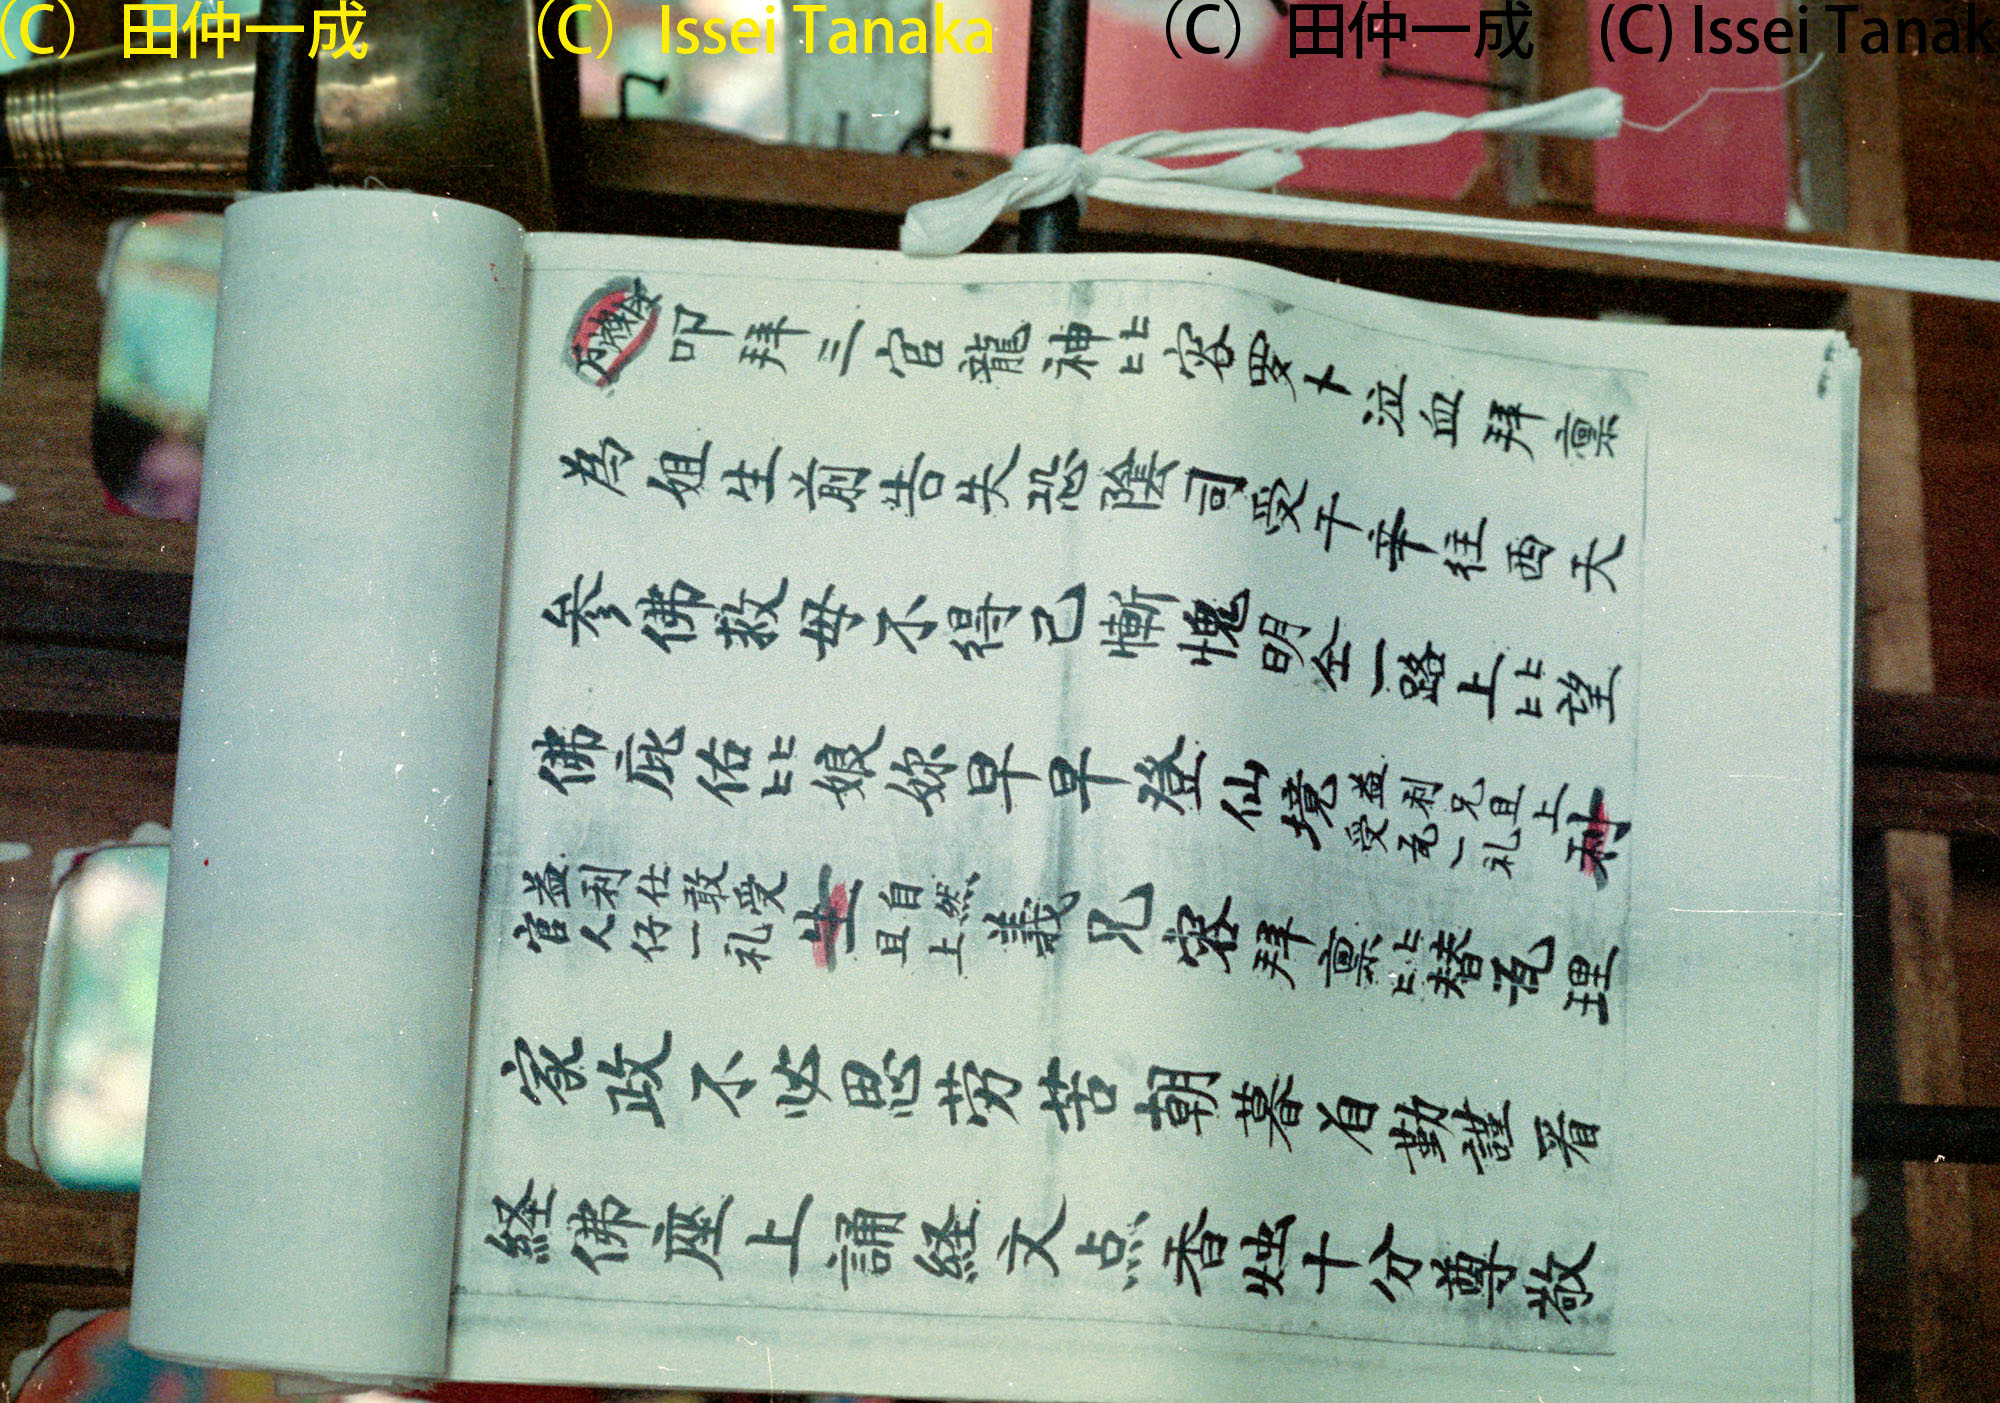 (C) 田仲一成 (C) Issei Tanaka (C) 田仲一成 (C) Issei Tanak
叩拜三官龍神比容罗卜泣血拜禀
為姐生前告失恐陰司受千辛往西天
参佛救母不得己慚愧明仝一路上比望
佛庇佑比娘妳早早登仙境益利兄且上受瓦一礼利
益利仕敢受官人仔一礼生自然且上義兄容拜禀比替瓦理
家政不必思劳苦朝暮自勤謹看
経佛座上誦経文点香烛十分尊敬